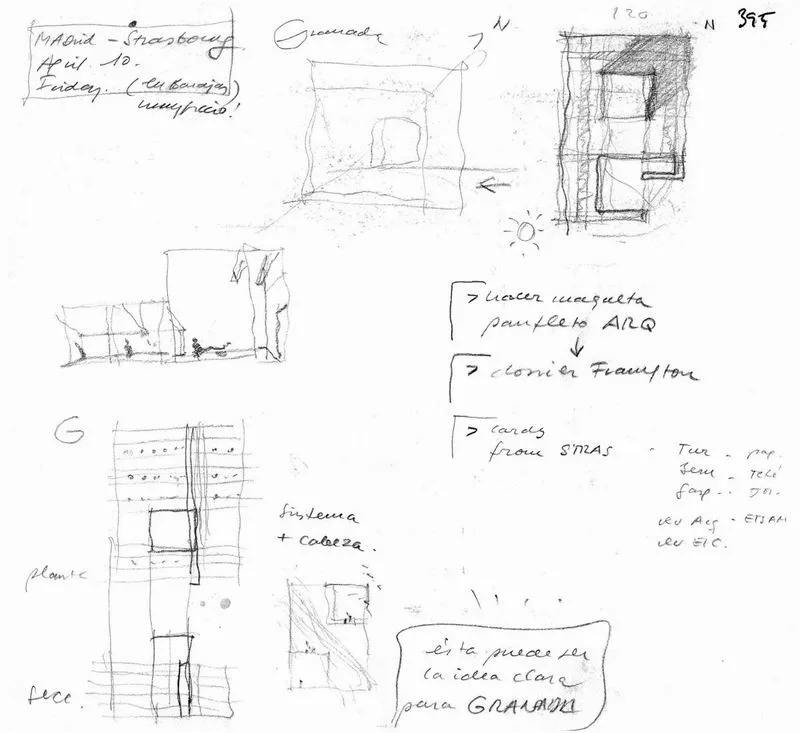 MADrid - Strasbourg
April 10.
Friday. (en Barajas)
Granada
N
120
N 395
> hacer maqueta
panfleto ARQ
> dossier Frampton
> cards
from STRAS - Tur - pap.
Jem - Teté
Gasp -
rev Arq - ETSAM
rev EIC.
G
Sistema
+ cabeza.
planta
secc.
ésta puede ser
la idea clara
para GRANADA